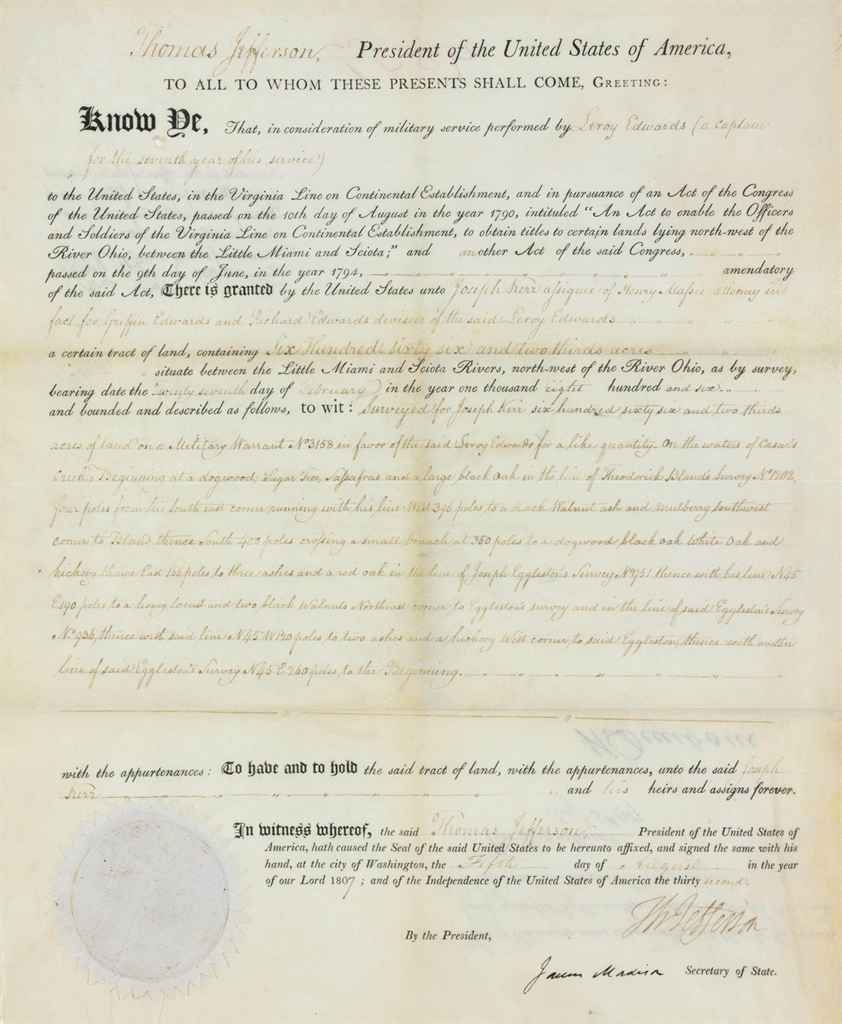 Thomas Jefferson, President of the United States of America,
TO ALL TO WHOM THESE PRESENTS SHALL COME, GREETING:
Know Ye, That, in consideration of military service performed by Leroy Edwards (a captain
for the seventh year of his service)
to the United States, in the Virginia Line on Continental Establishment, and in pursuance of an Act of the Congress
of the United States, passed on the 10th day of August in the year 1790, intituled "An Act to enable the Officers
and Soldiers of the Virginia Line on Continental Establishment, to obtain titles to certain lands lying north-west of the
River Ohio, between the Little Miami and Sciota;" and another Act of the said Congress,
passed on the 9th day of June, in the year 1794, amendatory
of the said Act, There is granted by the United States unto Joseph Kerr assignee of Henry Massie attorney in
fact for Griffin Edwards and Richard Edwards devisees of the said Leroy Edwards
a certain tract of land, containing Six Hundred sixty six and two thirds acres
situate between the Little Miami and Sciota Rivers, north-west of the River Ohio, as by survey,
bearing date the twenty seventh day of February in the year one thousand eight hundred and six
and bounded and described as follows, to wit: Surveyed for Joseph Kerr six hundred sixty six and two thirds
acres of Land on a Military Warrant No. 3158 in favor of the said Leroy Edwards for a like quantity. On the waters of Caesar's
Creek Beginning at a dogwood, Sugar Tree, Sassafras and a large black Oak in the line of Theodorick Bland's Survey No.
four poles from the South east corner running with his line West 396 poles to a black Walnut ash and mulberry southwest
corner to Bland thence South 400 poles crossing a small branch at 350 poles to a dogwood black oak White Oak and
hickory thence East poles to three ashes and a red oak in the line of Joseph Eggleston's Survey No. 951 thence with his line N45
E190 poles to a honey locust and two black Walnuts Northeast corner to Eggleston's survey and in the line of said Eggleston's Survey
No. 936, thence with said line N45 W 120 poles to two ashes and a hickory West corner, to said Eggleston, thence with another
line of said Eggleston's Survey N45 E 260 poles, to the Beginning.
with the appurtenances: To have and to hold the said tract of land, with the appurtenances, unto the said Joseph
Kerr and his heirs and assigns forever.
In witness whereof, the said Thomas Jefferson, President of the United States of
America, hath caused the Seal of the said United States to be hereunto affixed, and signed the same with his
hand, at the city of Washington, the Fifth day of August in the year
of our Lord 1807; and of the Independence of the United States of America the thirty second.
Th Jefferson
By the President,
James Madison Secretary of State.